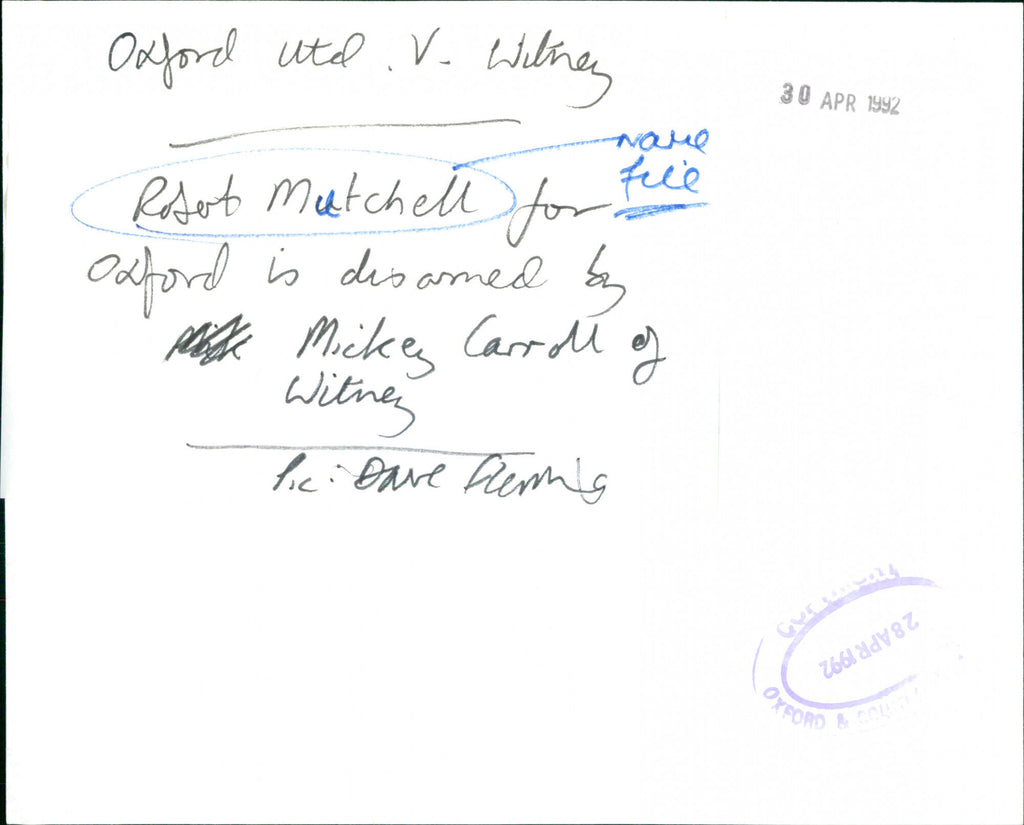 Oxford Utd. V. Witney
30 APR 1992
name
file
Robert Mutchell for
Oxford is disarmed by
Mickey Carroll of
Witney
Pic: Dave Fleming
COPYRIGHT
28 APR 1992
OXFORD & COUNTY